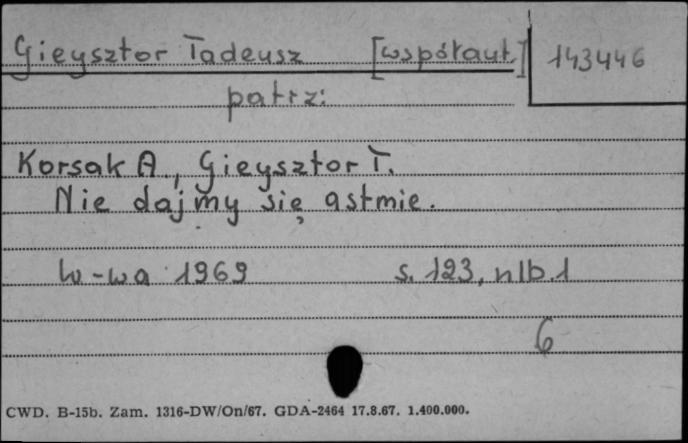 Gieysztor Tadeusz [współaut.] 143446
patrz:
Korsak A., Gieysztor T.
Nie dajmy się astmie.
W-wa 1969 s. 123, nlb. 1
6
CWD. B-15b. Zam. 1316-DW/On/67. GDA-2464 17.8.67. 1.400.000.